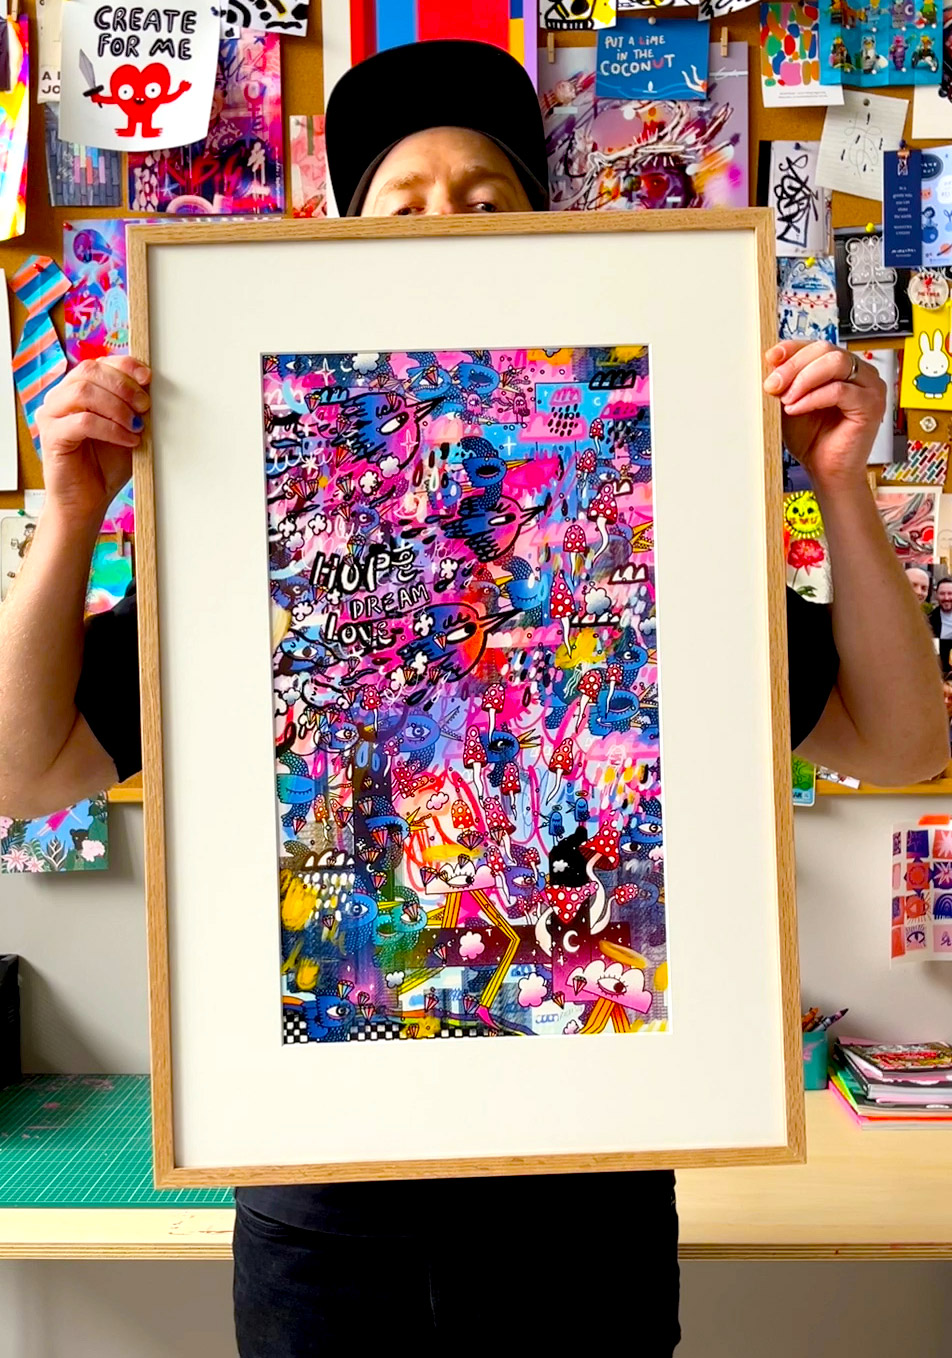 CREATE
FOR ME
PUT A LIME
IN THE
COCONUT
HOPE
DREAM
LOVE